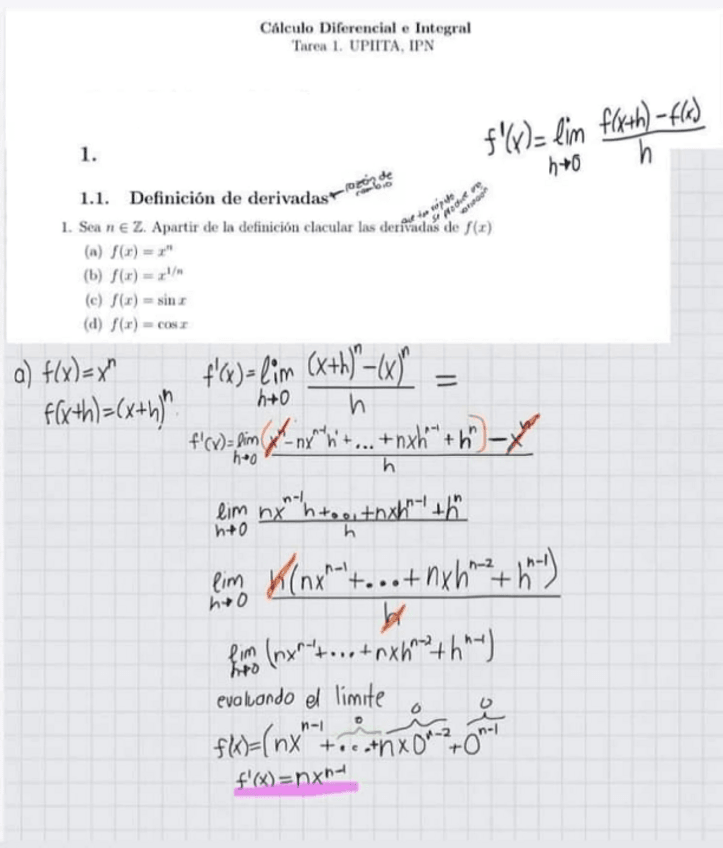 Cálculo Diferencial e Integral
Tarea 1. UPIITA, IPN
f'(x)= lim h→0 f(x+h)-f(x) / h
1.
1.1. Definición de derivadas razón de cambio
que tan rápido se produce una variación
1. Sea n ∈ Z. Apartir de la definición clacular las derivadas de f(x)
(a) f(x) = xⁿ
(b) f(x) = x^{1/n}
(c) f(x) = sin x
(d) f(x) = cos x
a) f(x)=xⁿ f'(x)= lim h→0 (x+h)ⁿ-(x)ⁿ / h =
f(x+h)=(x+h)ⁿ
f'(x)= lim h→0 (xⁿ-nxⁿ⁻¹h¹+...+nxhⁿ⁻¹+hⁿ)-xⁿ / h
lim h→0 nxⁿ⁻¹h+...+nxhⁿ⁻¹+hⁿ / h
lim h→0 h(nxⁿ⁻¹+...+nxhⁿ⁻²+hⁿ⁻¹) / h
lim h→0 (nxⁿ⁻¹+...+nxhⁿ⁻²+hⁿ⁻¹)
evaluando el límite
0 0 0
f(x)=(nxⁿ⁻¹+...+nx0ⁿ⁻²+0ⁿ⁻¹
f'(x)=nxⁿ⁻¹